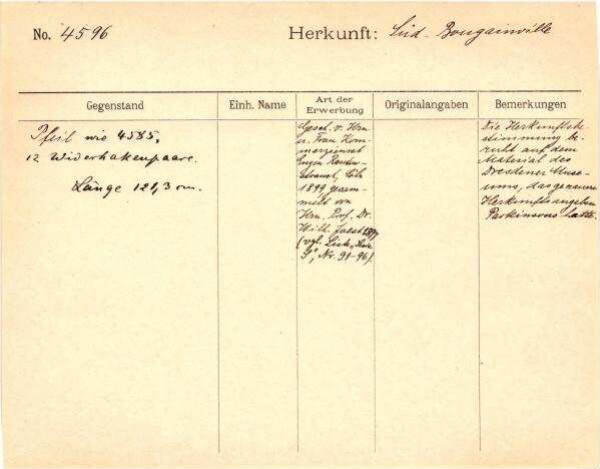 No. 4596
Herkunft: Süd-Bougainville
Gegenstand
Einh. Name
Art der
Erwerbung
Originalangaben
Bemerkungen
Pfeil wie 4585,
12 Widerhakenpaare.
Länge 121,3 cm.
Gesch. v. Hrn
u. Frau Kom-
merzienrat
Eugen Rauten-
strauch, Cöln
1899, gesam-
melt von
Hrn. Prof. Dr.
Wilh. Joest 1897
(vgl. Liste
Nr. 91-96).
Die Herkunftsbe-
stimmung be-
ruht auf dem
Material des
Dresdener Muse-
ums, das genaue
Herkunftsangaben
Parkinsons hatte.